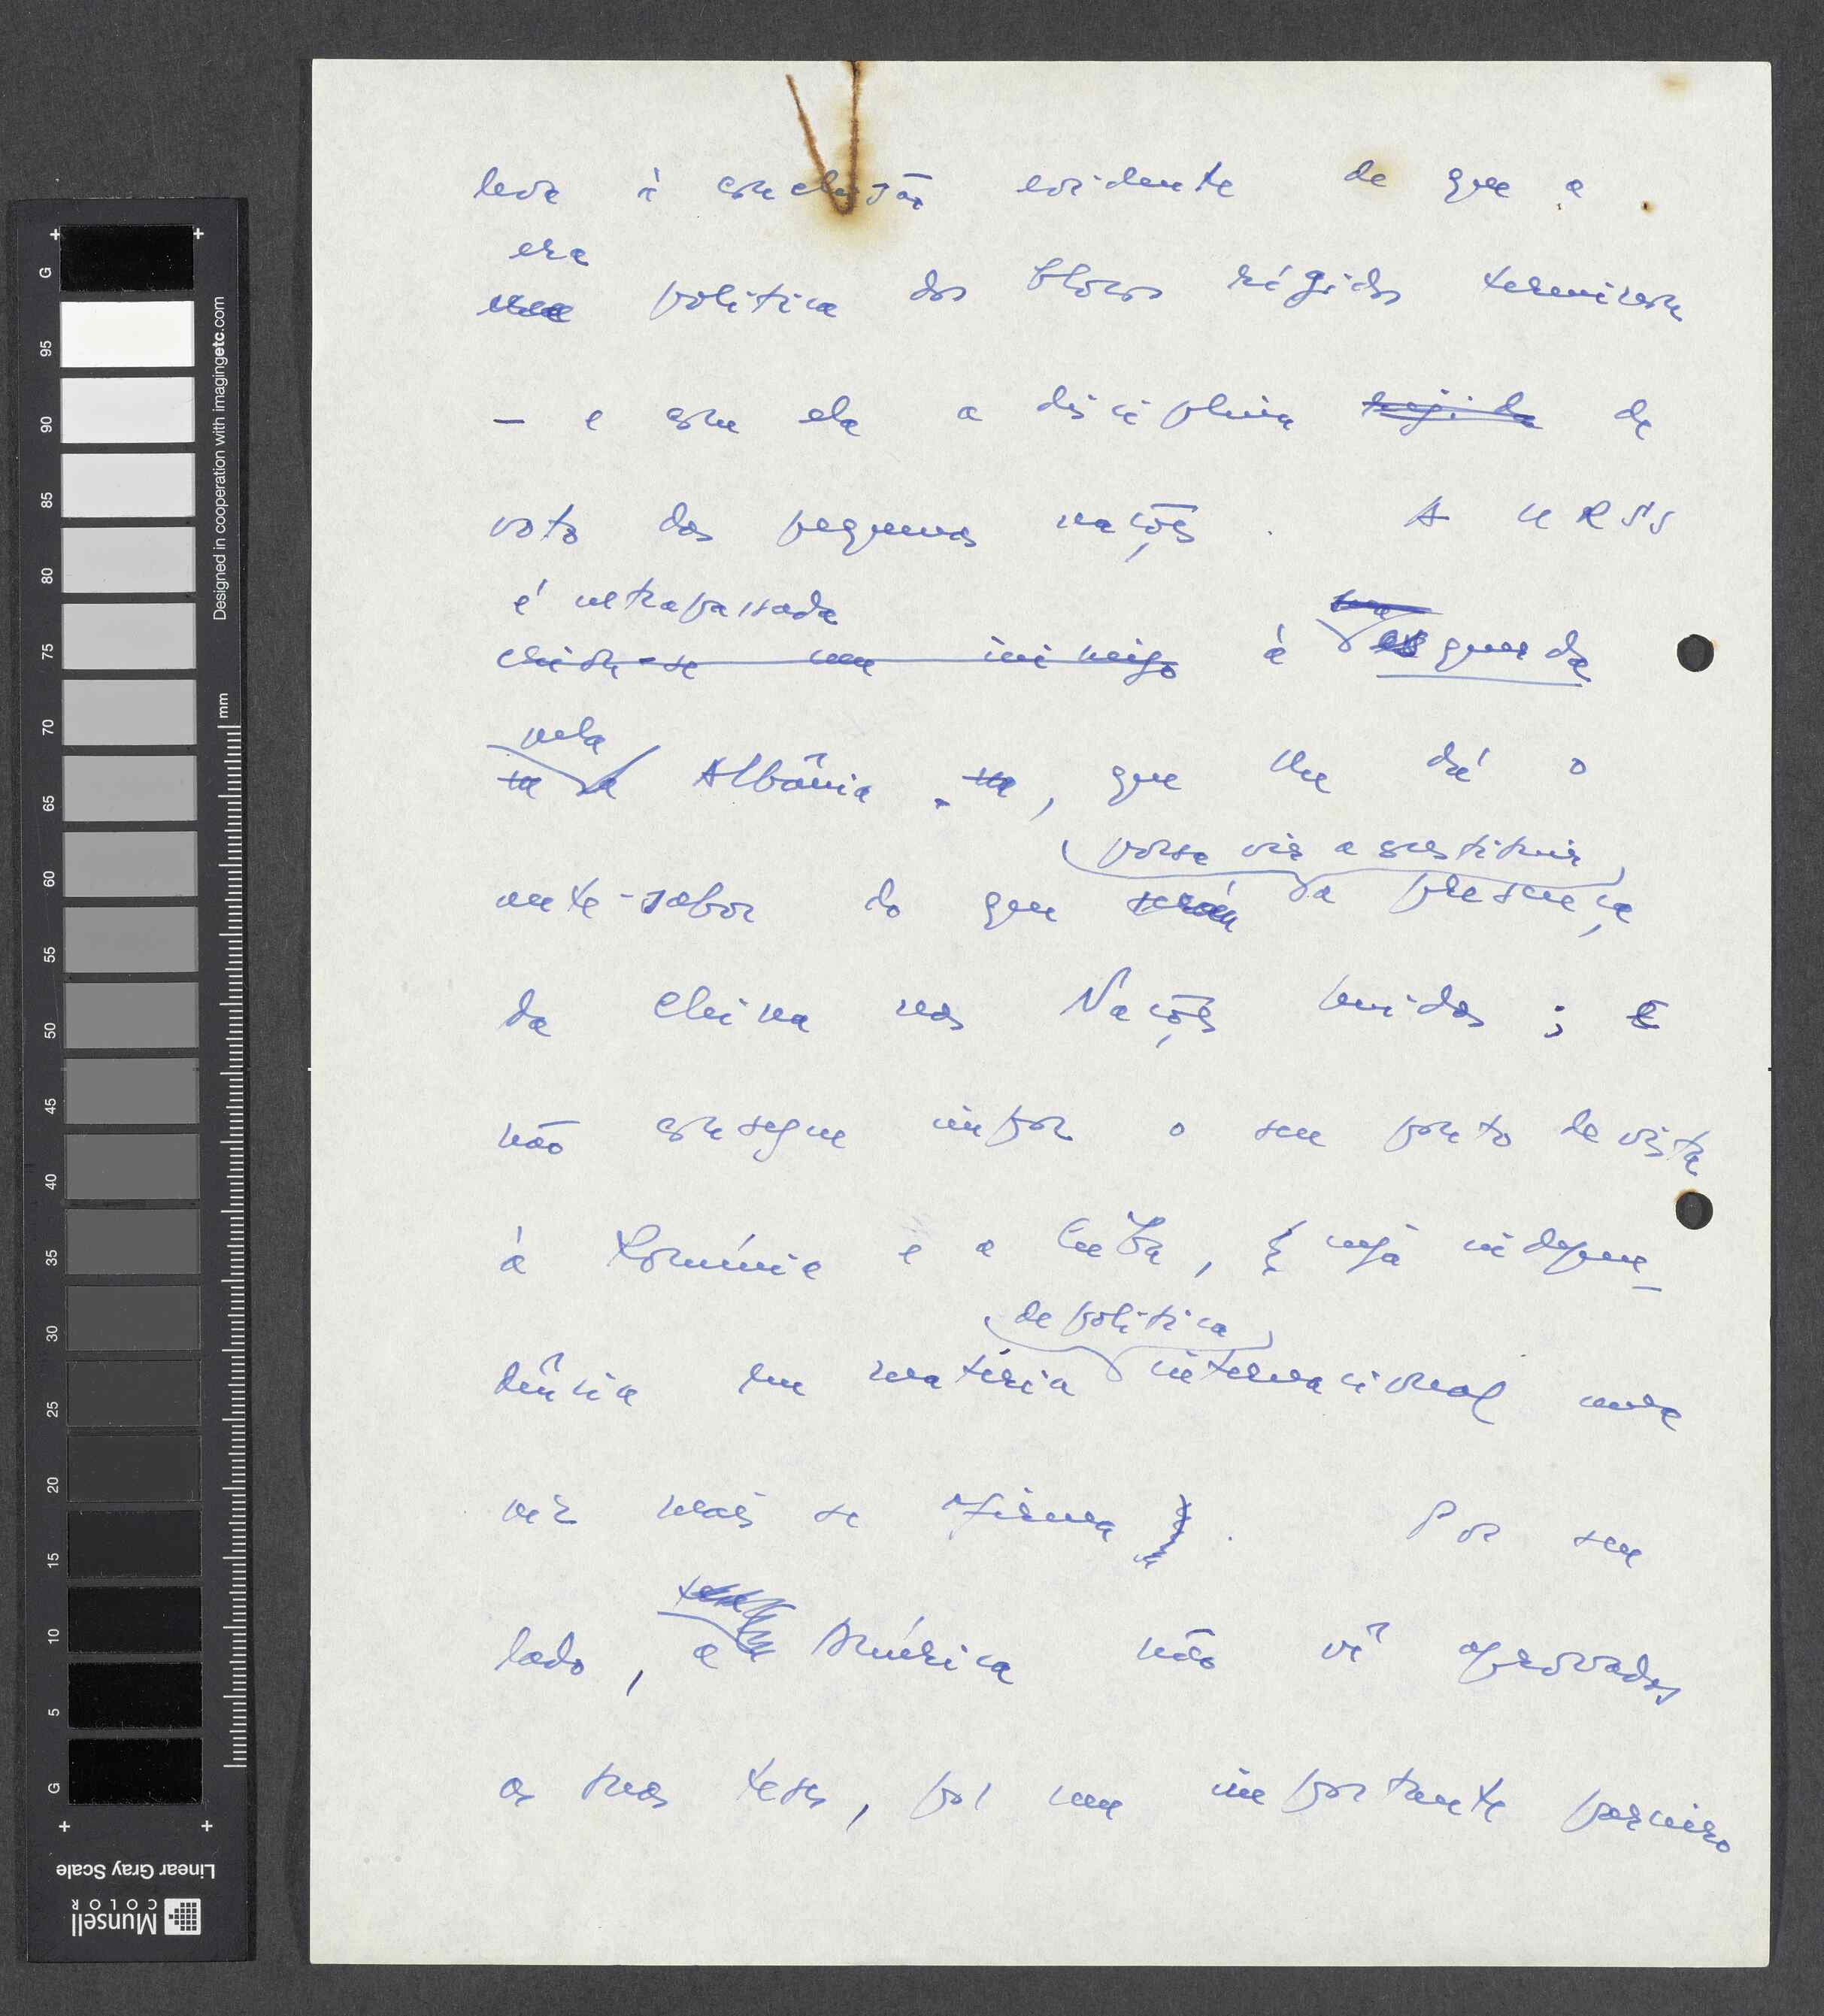 leva à conclusão evidente de que a
era
política dos blocos rígidos terminou
– e com ela a disciplina rígida de
voto das pequenas nações. A URSS
é ultrapassada
cinde-se um inimigo à esquerda
pela
a Albânia, que lhe dá o
possa vir a constituir
ante-sabor do que será a presença
da China nas Nações Unidas; E
não consegue impor o seu ponto de vista
à Roménia e a Cuba, (cuja indepen-
de política
dência em matéria internacional cada
vez mais se afirma). Por seu
lado, a América não vê aprovadas
as suas teses, por um importante parceiro
G 95 90 85 80 75 70 65 60 55 50 45 40 35 30 25 20 15 10 5 G
Designed in cooperation with imagingetc.com
mm
Linear Gray Scale
Munsell
COLOR